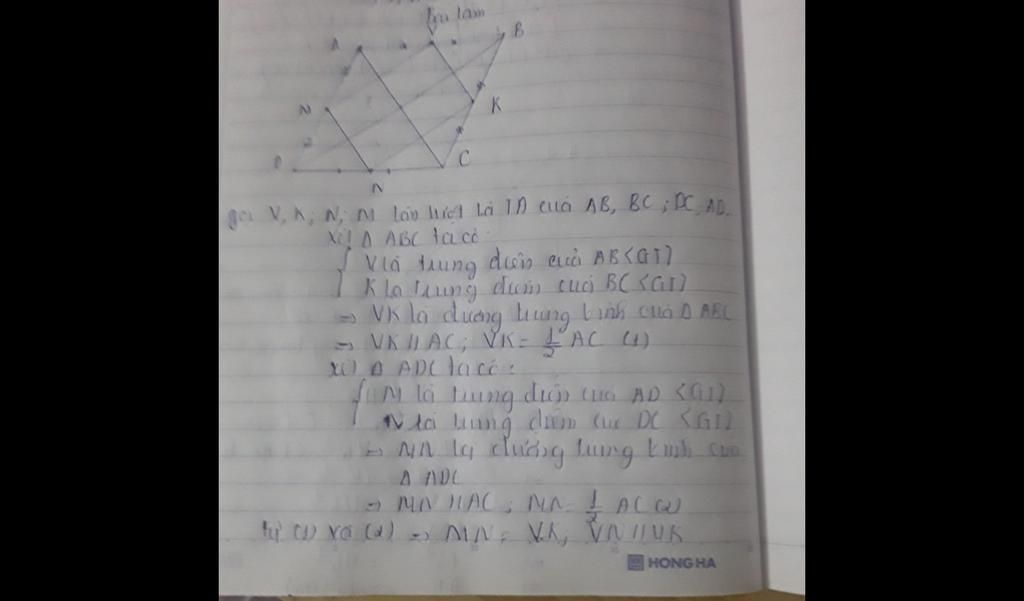 Bài làm
A
V
B
M
K
D
C
N
gọi V, K, N, M lần lượt là TĐ của AB, BC; DC, AD.
xét Δ ABC ta có:
V là trung điểm của AB <GT>
K là trung điểm của BC <GT>
⇒ VK là đường trung bình của Δ ABC
⇒ VK // AC; VK = 1/2 AC (1)
xét Δ ADC ta có:
M là trung điểm của AD <GT>
N là trung điểm của DC <GT>
⇒ MN là đường trung bình của
Δ ADC
⇒ MN // AC; MN = 1/2 AC (2)
từ (1) và (2) ⇒ MN = VK; VN // VK
HONG HA